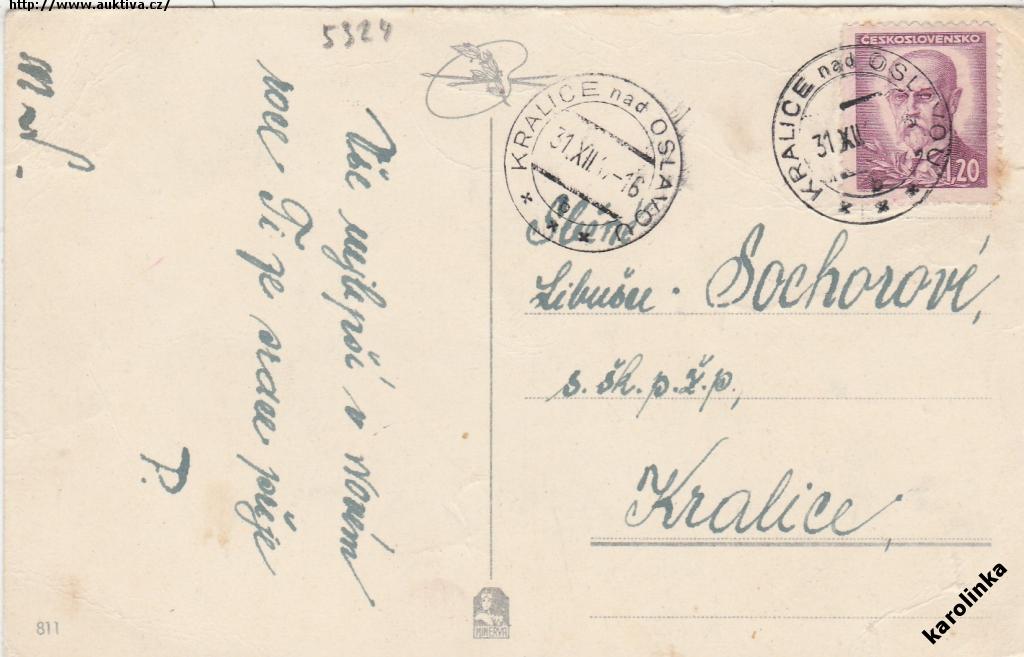 http://www.auktiva.cz/
5324
Vše nejlepší v novém
roce Ti ze srdce přeje
P.
ČESKOSLOVENSKO
1,20
KRALICE nad OSLAVOU
31.XII
KRALICE nad OSLAVOU
31.XII -16
b
Libušu Sochorové,
s.šk.p.ž.p.,
Kralice,
811
MINERVA
karolinka